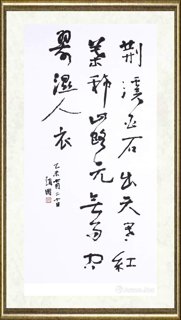 荆溪白石出天寒红
葉稀山路元無雨空
翠濕人衣
乙未月二十日